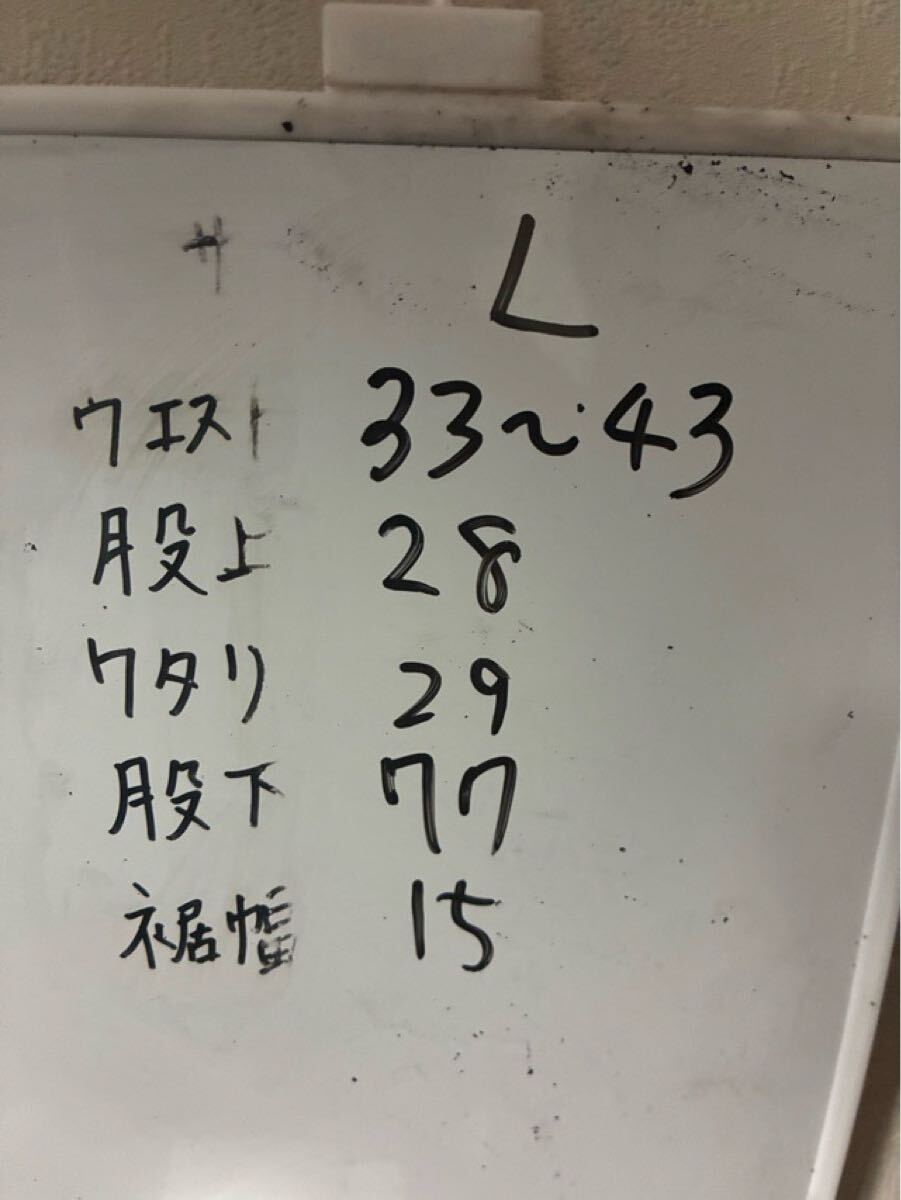 サ L
ウエスト 33～43
股上 28
ワタリ 29
股下 77
裾幅 15